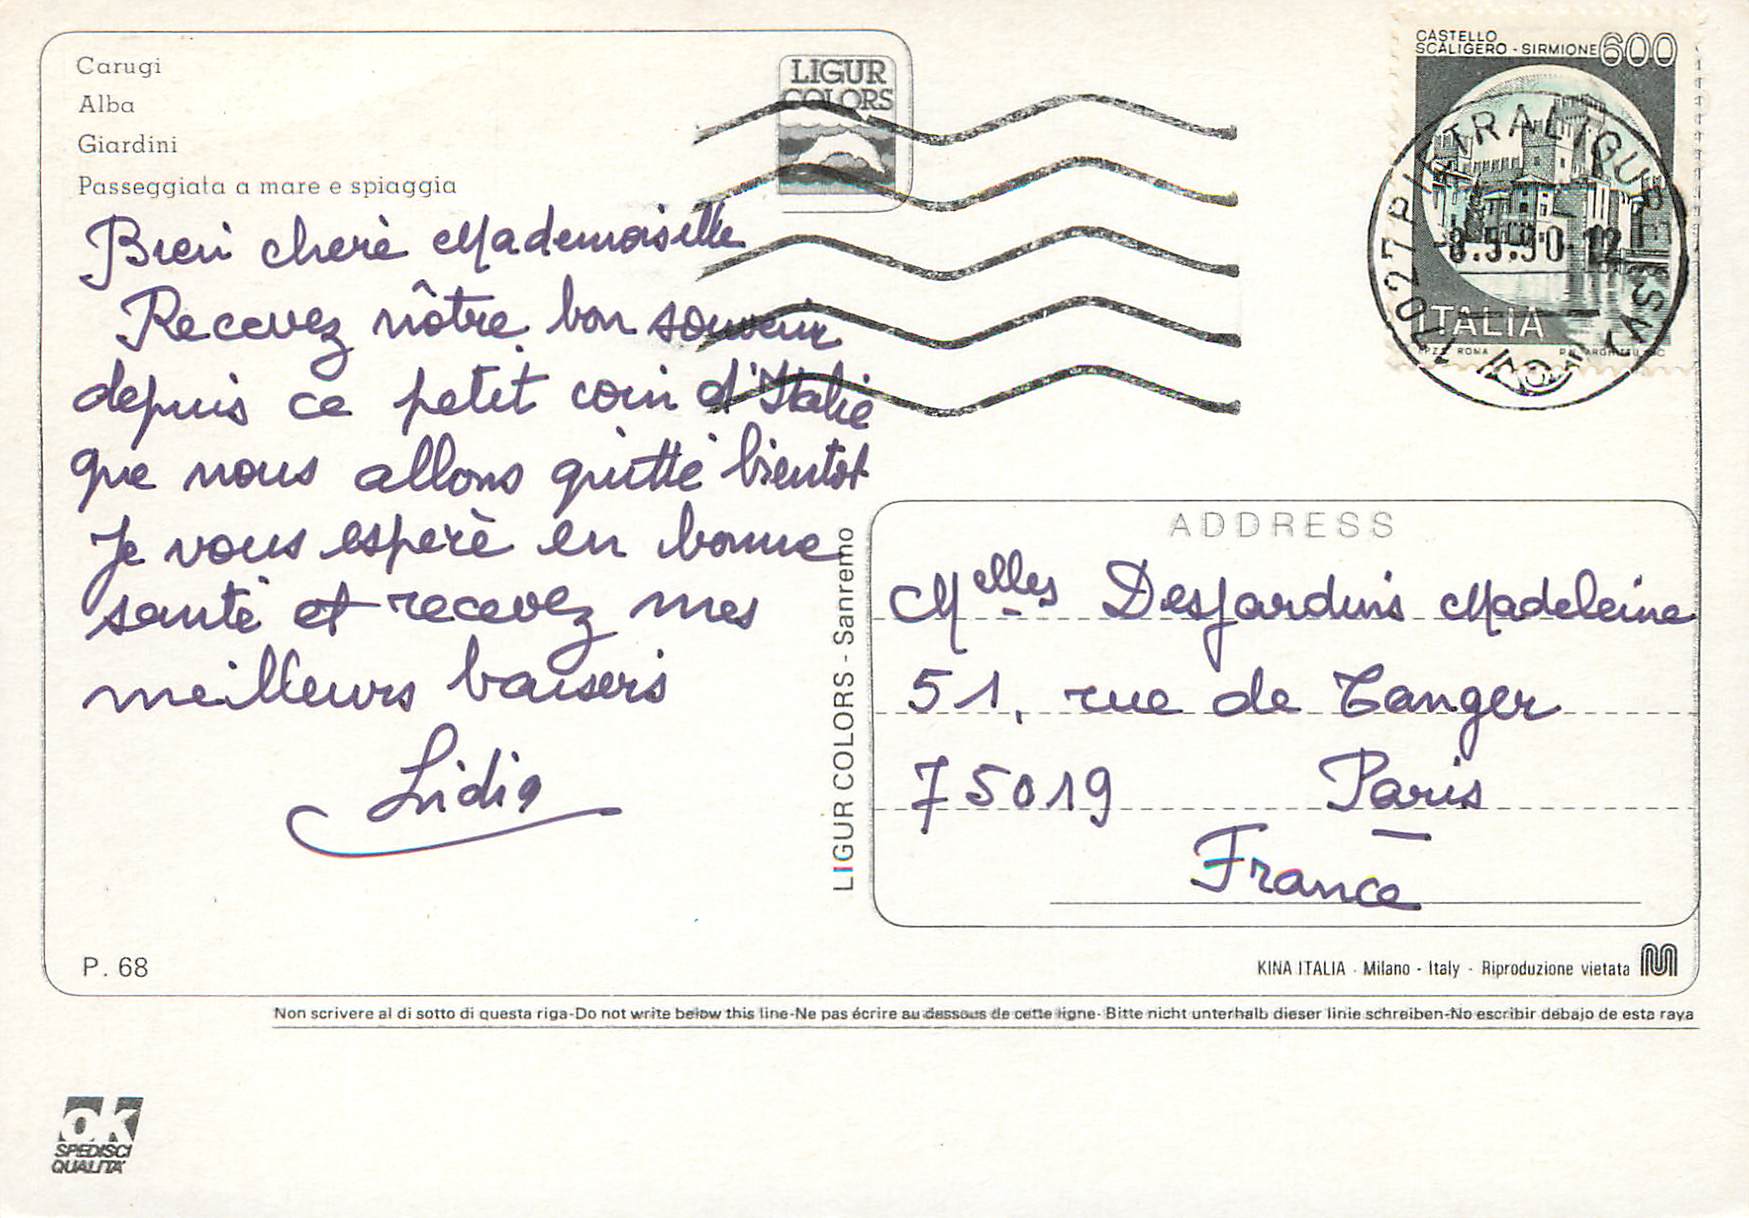 Carugi
Alba
Giardini
Passeggiata a mare e spiaggia
LIGUR
COLORS
Bien cherè Mademoiselle
Recevez nôtre bon souvenir
depuis ce petit coin d'Italie
que nous allons quitté bientot
Je vous esperè en bonne
santè et recevez mes
meilleurs baisers
Lidia
P. 68
LIGUR COLORS - Sanremo
CASTELLO
SCALIGERO - SIRMIONE 600
ITALIA
I.P.Z.S. ROMA
17027 PIETRA LIGURE (SV)
8.5.90.12
ADDRESS
Melles Desjardins Madeleine
51, rue de Tanger
75019 Paris
France
KINA ITALIA - Milano - Italy - Riproduzione vietata
Non scrivere al di sotto di questa riga-Do not write below this line-Ne pas écrire au dessous de cette ligne- Bitte nicht unterhalb dieser linie schreiben-No escribir debajo de esta raya
OK
SPEDISCI
QUALITA'